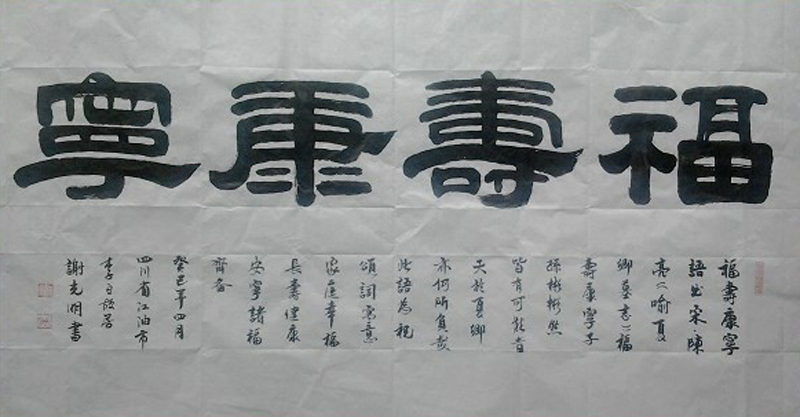 福壽康寧
福壽康寧
語出宋陳
亮《喻夏
卿墓志》福
壽康寧子
孫彬彬然
皆有可觀者
天於夏卿
亦何所負哉
此語為祝
頌詞寓意
家庭幸福
長壽健康
安寧諸福
齊备
癸巳年四月
四川省江油市
李白故居
謝克明書